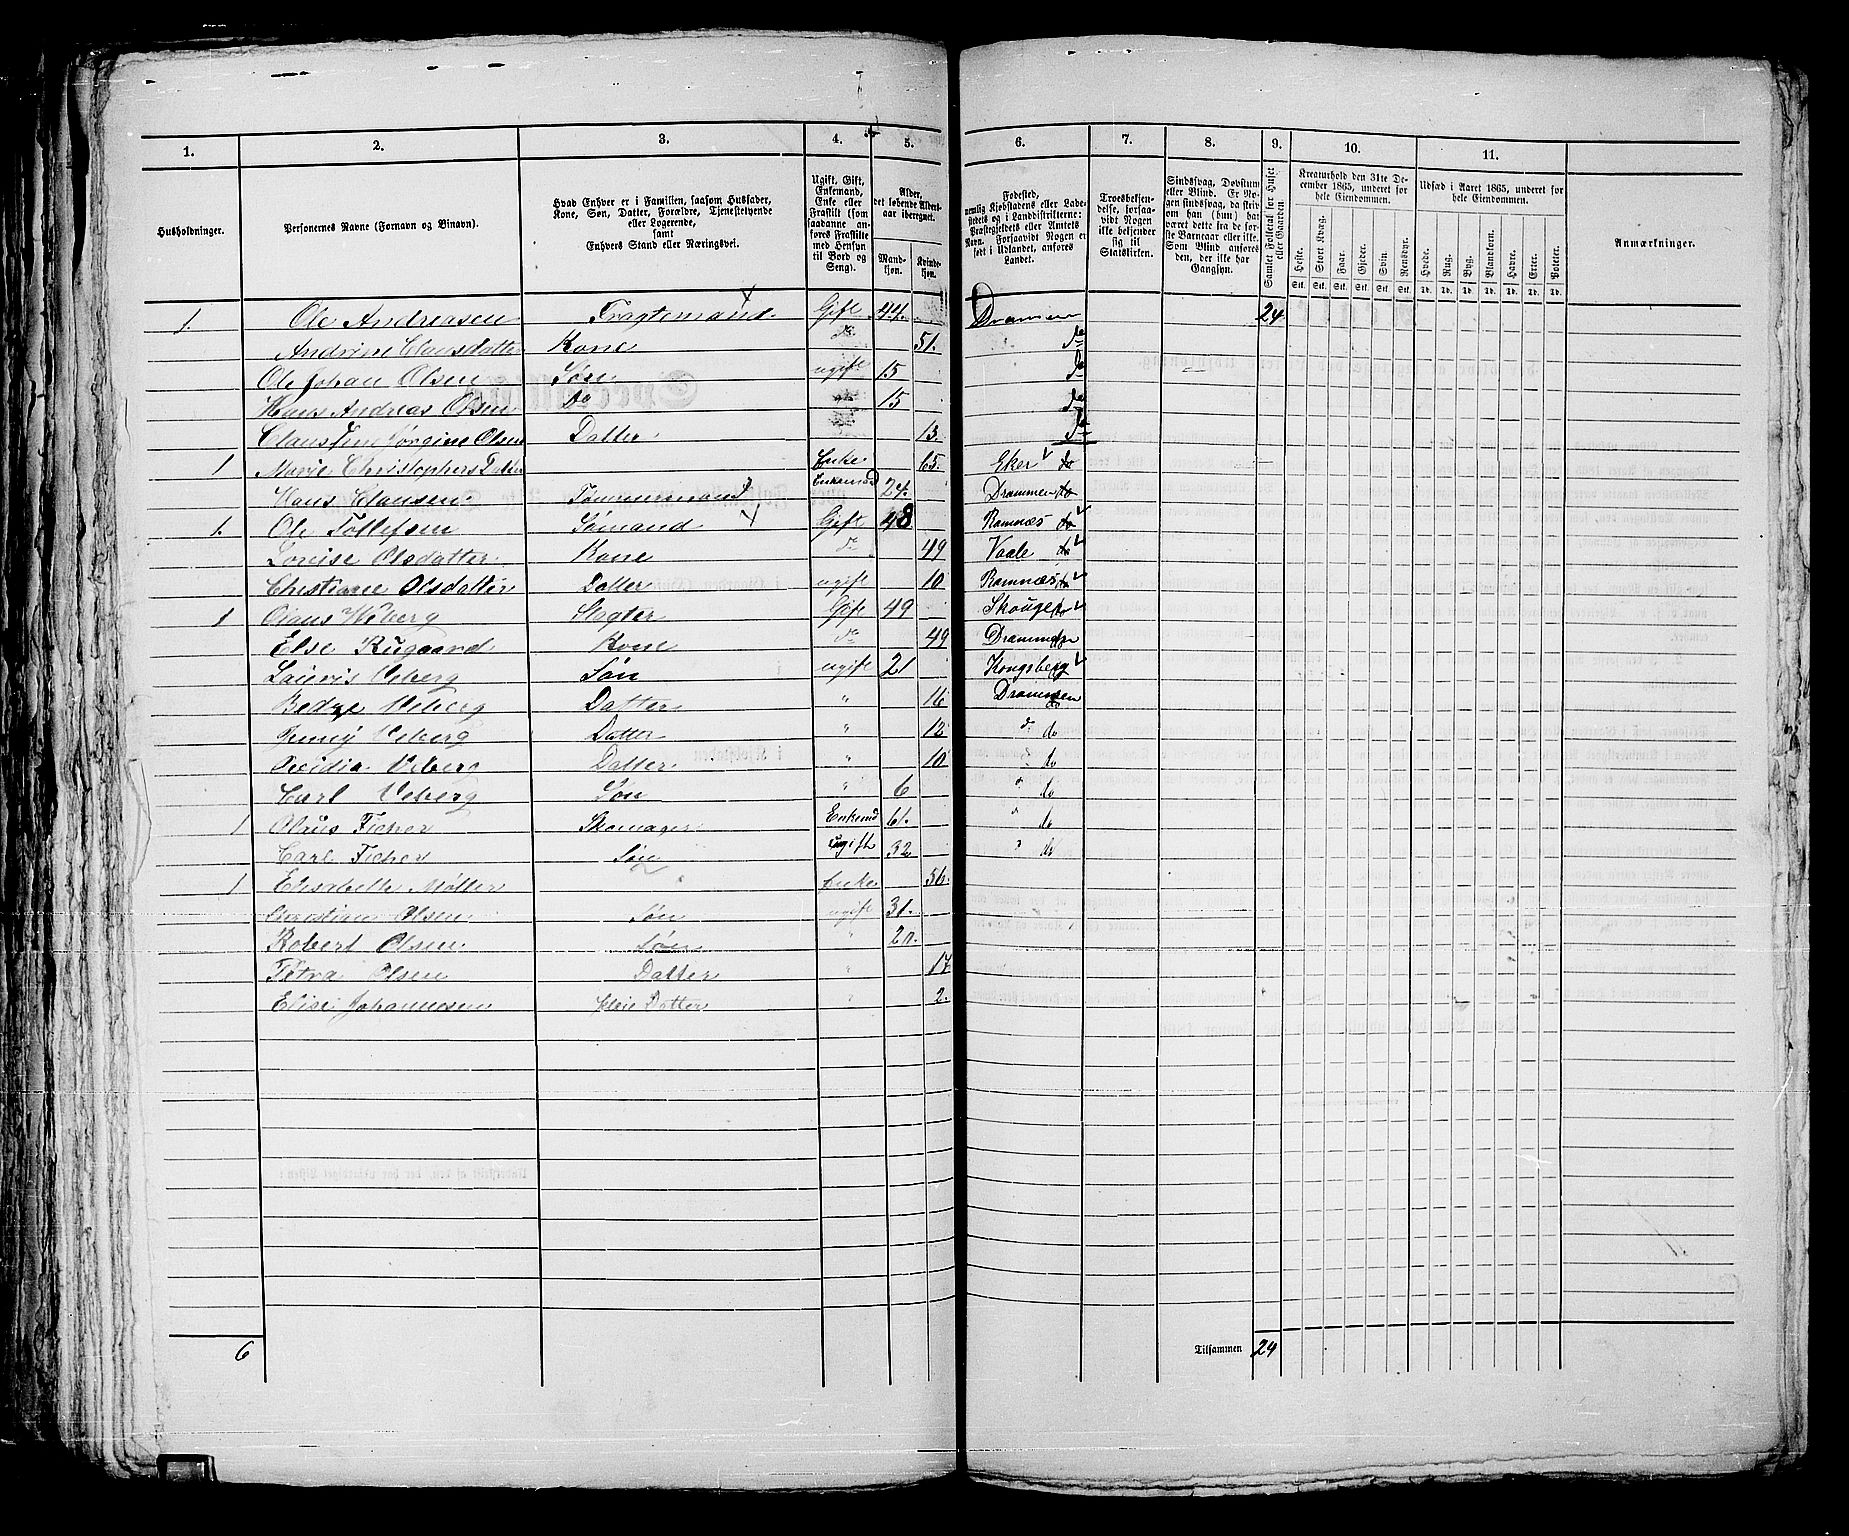 1. 2. 3. 4. 5. 6. 7. 8. 9. 10. 11.
Husholdninger.
Personernes Navne (Fornavn og Binavn).
Hvad Enhver er i Familien, saasom Husfader, Kone, Søn, Datter, Forældre, Tjenestetyende eller Logerende, samt Enhvers Stand eller Næringsvei.
Ugift, Gift, Enkemand, Enke eller Fraskilt (som saadanne anføres Fraskilte med Hensyn til Bord og Seng).
Alder, det løbende Aldersaar iberegnet.
Mandkjøn. Kvindekjøn.
Fødested, nemlig Kjøbstadens eller Ladestedets og i Landdistrikterne: Præstegjeldets eller Amtets Navn. Forsaavidt Nogen er født i Udlandet, anføres Landet.
Troesbekjendelse, forsaavidt Nogen ikke bekjender sig til Statskirken.
Sindssvag, Døvstum eller Blind. Er Nogen sindssvag, da skriv om han (hun) har været dette fra de første Barneaar eller ikke. Som Blind anføres den, der ikke har Gangsyn.
Samlet Folketal for Huset eller Gaarden.
Kreaturhold den 31te December 1865, underet for hele Eiendommen.
Heste. Stort Kvæg. Faar. Gjeder. Svin. Rensdyr.
Stk. Stk. Stk. Stk. Stk. Stk.
Udsæd i Aaret 1865, underet for hele Eiendommen.
Hvede. Rug. Byg. Blandkorn. Havre. Erter. Poteter.
Td. Td. Td. Td. Td. Td. Td.
Anmærkninger.
1. Ole Andreasen Fragtemand Gift 44. Drammen 24
Andrine Clausdatter Kone do 51. do
Ole Johan Olsen Søn ugift 15 do
Hans Andreas Olsen Do 15 do
Jørgine Olsen Datter 13. do
1 Marie Christophers Datter Enke 65. Eker do
Hans Clausen Tømmermand Enkemand 24. Drammen do
1. Ole Tollefsen Sømand Gift 48 Ramnæs do
Lovise Olsdatter Kone do 49 Vaale do
Christiane Olsdatter Datter ugift 10 Ramnæs do
1 Claus Wiberg Slagter Gift 49 Skouge do
Else Rugaard Kone do 49 Drammen do
Viberg Søn ugift 21 Kongsberg
Viberg Datter " 16 Drammen do
Jenny Viberg Datter " 12 do do
Viberg Datter " 10 " do
Carl Viberg Søn " 6 " do
1 Ficher Skomager Enkemd 61. " do
Carl Ficher Søn ugift 32 " do
1 Elisabeth Møller Enke 56.
Christian Olsen Søn ugift 31.
Robert Olsen Søn " 20.
Petra Olsen Datter " 17
Elise Johannesen Datter " 2.
6 Tilsammen 24